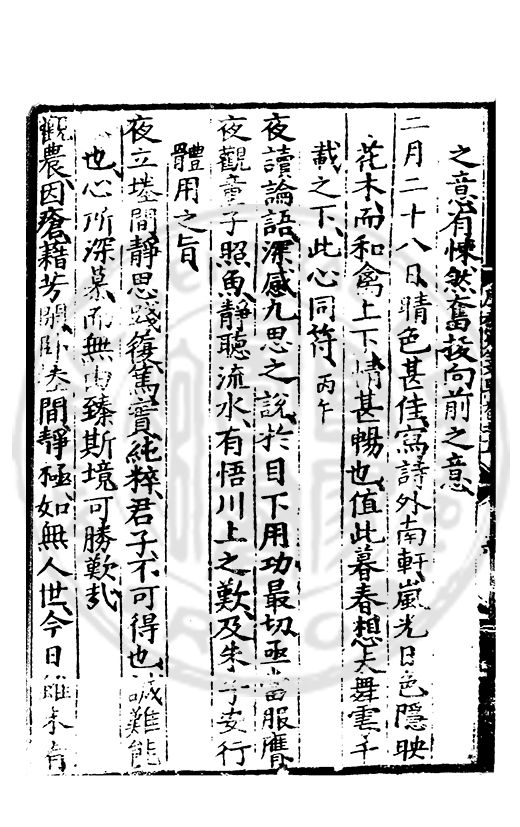 之意有悚然奮投向前之意
二月二十八日晴色甚佳寫詩外南軒嵐光日色隱映
花木而和禽上下情甚暢也值此暮春想夫舞雩千
載之下此心同符丙午
夜讀論語深感九思之說於目下用功最切亟當服膺
夜觀童子照魚靜聽流水有悟川上之歎及朱子
行
體用之旨
夜立塍間靜思踐復篤實純粹君子不可得也誠難能
也心所深慕而無由臻斯境可勝歎哉
觀農因瘡藉芳
臥塍間靜極如無人世今日雖未有